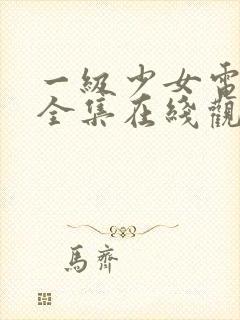 一級少女電
全集在綫觀
馬齊